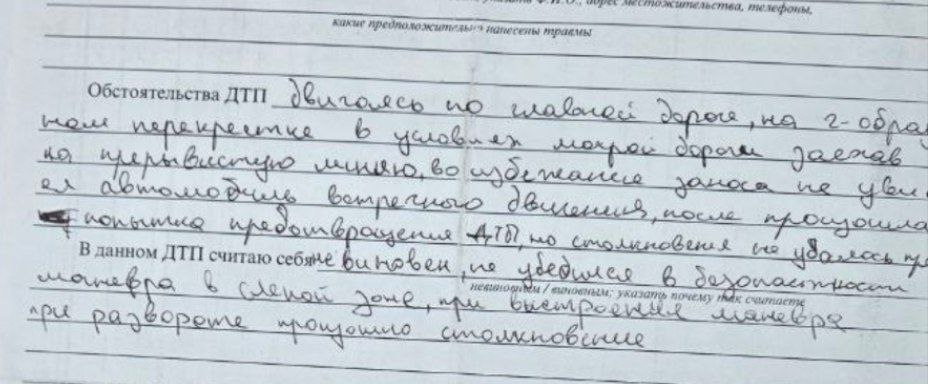 адрес местожительства, телефоны,
какие предположительно нанесены травмы
Обстоятельства ДТП двигаясь по главной дороге, на г-обра
ном перекрестке в условиях мокрой дороги заехав
на прерывистую линию, во избежание заноса не уви
ел автомобиль встречного движения, после произошла
попытка предотвращения ДТП, но столкновения не удалось пре
В данном ДТП считаю себя не виновен, не убедился в безопасности
невиновным / виновным; указать почему так считаете
маневра в слепой зоне, при выстроения маневра
при развороте произошло столкновение